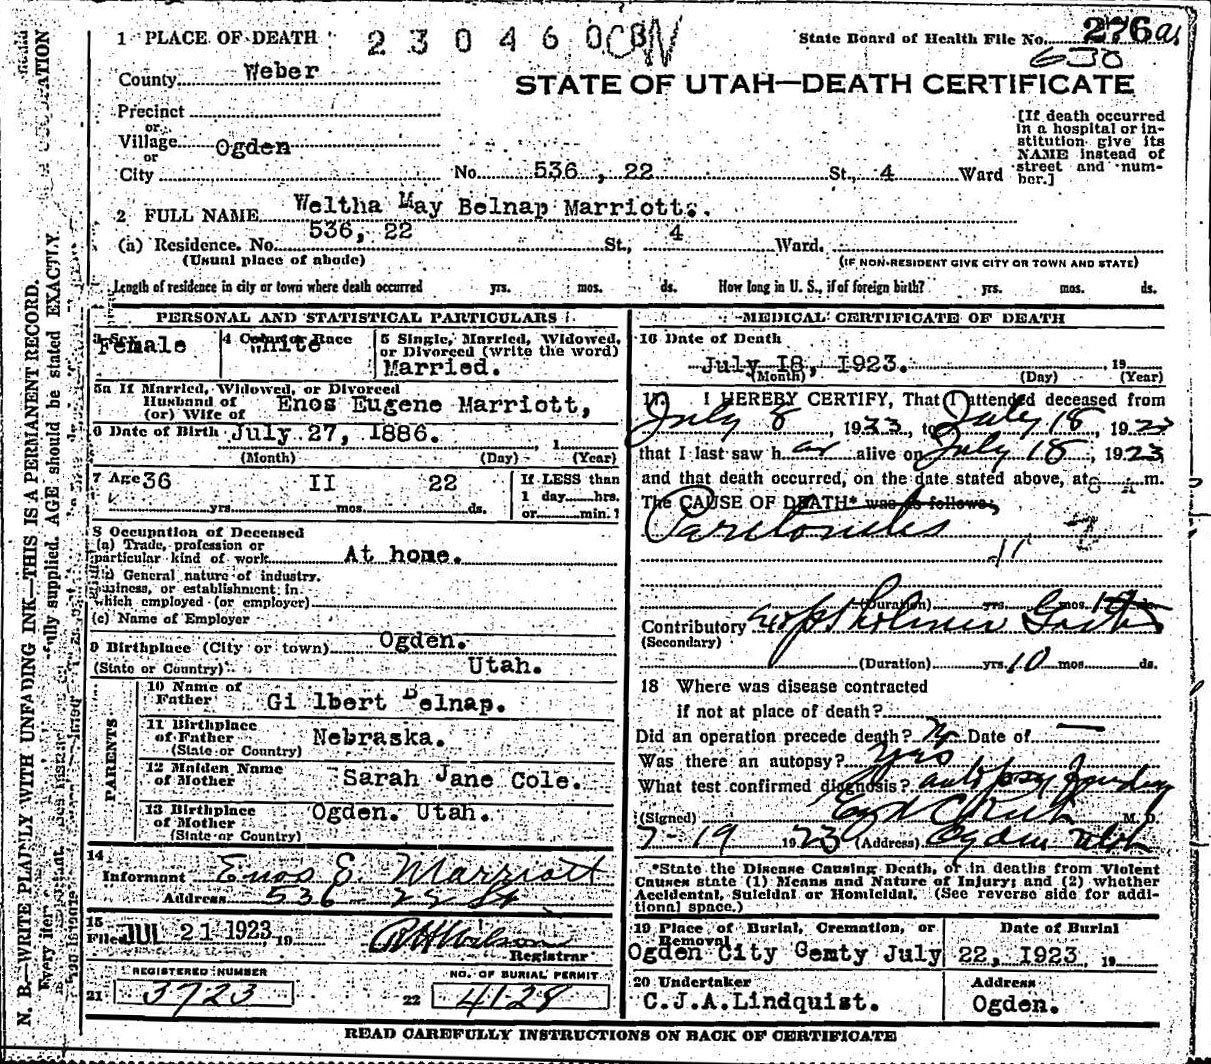 1 PLACE OF DEATH 2 3 0 4 6 0 State Board of Health File No. 276
630
County Weber
STATE OF UTAH—DEATH CERTIFICATE
Precinct
or
Village Ogden
or
City No. 536, 22 St., 4 Ward
[If death occurred
in a hospital or in-
stitution give its
NAME instead of
street and num-
ber.]
2 FULL NAME Weltha May Belnap Marriott.
(a) Residence. No. 536, 22 St., 4 Ward.
(Usual place of abode) (IF NON-RESIDENT GIVE CITY OR TOWN AND STATE)
Length of residence in city or town where death occurred yrs. mos. ds. How long in U. S., if of foreign birth? yrs. mos. ds.
PERSONAL AND STATISTICAL PARTICULARS
3 Sex Female
4 Color or Race White
5 Single, Married, Widowed,
or Divorced (write the word)
Married.
5a If Married, Widowed, or Divorced
Husband of
(or) Wife of Enos Eugene Marriott,
6 Date of Birth July 27, 1886. , 1
(Month) (Day) (Year)
7 Age 36 II 22
yrs. mos. ds.
If LESS than
1 day hrs.
or min.?
8 Occupation of Deceased
(a) Trade, profession or
particular kind of work At home.
(b) General nature of industry,
business, or establishment in
which employed (or employer)
(c) Name of Employer
9 Birthplace (City or town) Ogden.
(State or Country) Utah.
PARENTS
10 Name of
Father Gilbert Belnap.
11 Birthplace
of Father Nebraska.
(State or Country)
12 Maiden Name
of Mother Sarah Jane Cole.
13 Birthplace
of Mother Ogden. Utah.
(State or Country)
14
Informant Enos E. Marriott
Address 536 - 22 St
15
Filed JUL 21 1923, 19
Registrar
REGISTERED NUMBER
21 3723
NO. OF BURIAL PERMIT
22 4128
MEDICAL CERTIFICATE OF DEATH
16 Date of Death
July 18, 1923. , 19
(Month) (Day) (Year)
17. I HEREBY CERTIFY, That I attended deceased from
July 8, 1923, to July 18, 1923
that I last saw her alive on July 18, 1923
and that death occurred, on the date stated above, at 8 A m.
The CAUSE OF DEATH* was as follows:
Peritonitis
(Duration) yrs. mos. ds.
Contributory
(Secondary)
(Duration) yrs. 10 mos. ds.
18 Where was disease contracted
if not at place of death?
Did an operation precede death? No Date of —
Was there an autopsy? yes
What test confirmed diagnosis? autopsy
(Signed) M. D.
7-19 1923 (Address) Ogden Utah
*State the Disease Causing Death, or in deaths from Violent
Causes state (1) Means and Nature of Injury; and (2) whether
Accidental, Suicidal or Homicidal. (See reverse side for addi-
tional space.)
19 Place of Burial, Cremation, or
Removal
Ogden City Cemty
Date of Burial
July 22, 1923. 19
20 Undertaker
C.J.A.Lindquist.
Address
Ogden.
READ CAREFULLY INSTRUCTIONS ON BACK OF CERTIFICATE
N. B.—WRITE PLAINLY WITH UNFADING INK—THIS IS A PERMANENT RECORD.
Every item fully supplied. AGE should be stated EXACTLY.